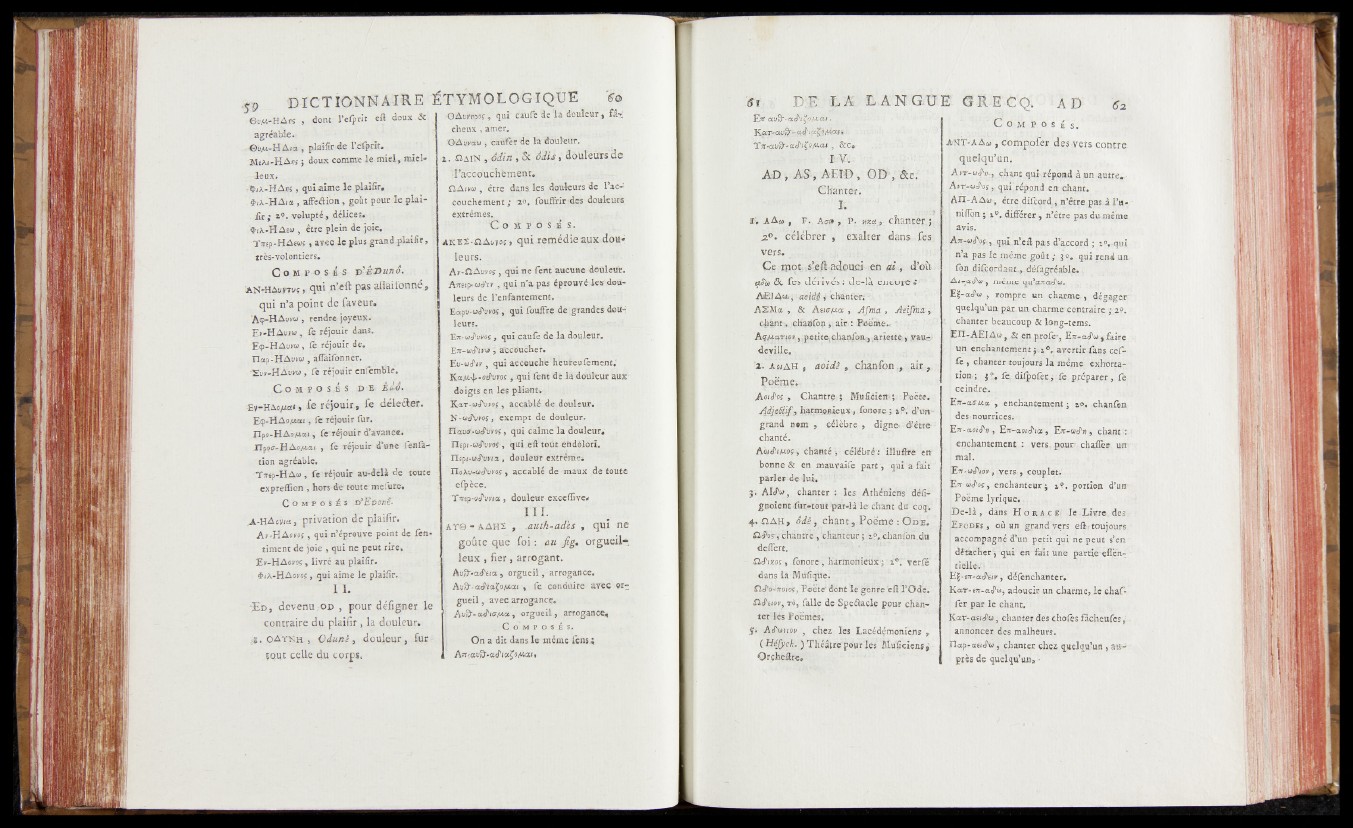 59 DICTIONNAIRE ÉTYMOLOGIQUE 60
Θυμ-ΗΔης , dont l'eſprit eſt doux &
agréable.
Θυμ-ΗΔια , plaiſir de l'eſprit.
Μελι-ΗΔης ; doux comme le miel, miel-
leux.
Φιλ-ΗΔης , qui aime le plaiſir.
Φιλ-ΗΔια , affection , goût pour le plai-
ſir ; 2°. volupté, délices.
Φιλ-ΗΔεω , être plein de joie.
Υπερ-ΗΔεως , avec le plus grand plaiſir,
très-volontiers.
COMPOSÉS D'ÉDunó.
ΑΝ-ΗΔυντος , qui n'eſt pas aſſaiſonné,
qui n'a point de ſaveur.
Αφ-ΗΔυνω , rendre joyeux.
Εν-ΗΔυνω , ſe réjouir dans.
Εφ-ΗΔυνω , ſe réjouir de.
Παρ-ΗΔυνω , aſſaiſonner.
Συν-ΗΔυνω , ſe réjouir enſemble.
COMPOSÉS DE Édó.
Εν-ΗΔομαι, ſe réjouir, ſe délecter.
Εφ-ΗΔομαι, ſe réjouir ſur.
Προ-ΗΔομαι, ſe réjouir d'avance.
Προσ-ΗΔομαι , ſe réjouir d'une ſenſa-
tion agréable.
Υπερ-ΗΔω , ſe réjouir au-delà de toute
expreſſion , hors de toute meſure.
COMPOSÉS D'EDonê.
Α-ΗΔονια, privation de plaiſir.
Αν-ΗΔονος , qui n'éprouve point de ſen-
timent de joie , qui ne peut rire.
Εν-ΗΔονος , livré au plaiſir.
Φιλ-ΗΔονος , qui aime le plaiſir.
II.
ED, devenu OD , pour déſigner le
contraire du plaiſir, la douleur.
1. ΟΔΥΝΗ , Odunê, douleur, ſur-
tout celle du corps.
ΟΔυνηρος , qui cauſe de la douleur, fâ-
cheux , amer.
ΟΔυναω , cauſer de la douleur.
2. ΩΔΙΝ , ódin , & ódis , douleurs de
l'accouchement.
ΩΔινω , être dans les douleurs de l'ac-
couchement ; 2°. ſouffrir des douleurs
extrêmes.
COMPOSÉS.
ΑΚΕΣ-ΩΔυνος, qui remédie aux dou-
leurs.
Αν-ΩΔυνος , qui ne ſent aucune douleur.
Απειρ-ωδιν , qui n'a pas éprouvé les dou-
leurs de l'enfantement.
Βαρυ-ωδυνος , qui ſouffre de grandes dou-
leurs.
Επ-ωδυνος , qui cauſe de la douleur.
Επ-ωδινω , accoucher.
Ευ-ωδιν , qui accouche heureuſement.
Καμψ-οδυνος , qui ſent de la douleur aux
doigts en les pliant.
Κατ-ωδυνος , accablé de douleur.
Ν-ωδυνος , exempt de douleur.
Παυσ-ωδυνος , qui calme la douleur.
Περι-ωδυνος , qui eſt tout endolori.
Περι-ωδυνια , douleur extrême.
Πολυ-ωδυνος , accablé de maux de toute
eſpèce.
Υπερ-οδυνια , douleur exceſſive.
III.
ΑΥΘ-ΑΔΗΣ , auth-adès , qui ne
goûte que ſoi : au fig. orgueil-
leux , fier , arrogant.
Αυθ-αδεια, orgueil, arrogance.
Αυθ-αδιαζομαι , ſe conduire avec or-
gueil , avec arrogance.
Αυθ-αδισμα , orgueil , arrogance.
COMPOSÉS.
On a dit dans le même ſens ;
Απ-αυθ-αδιαζομαι.
61 DE LA LANGUE GRECQ. AD 62
Επ-αυθ-αδιζομαι.
Κατ-αυθ-αδιαζομαι.
Υπ-αυθ-αδιζομαι , &c.
IV.
AD, AS, AEID, OD, &c.
Chanter.
I.
1. ΑΔω , F. Ασω, P. ηκα, chanter ;
2°. célébrer , exalter dans ſes
vers.
Ce mot s'eſt adouci en ai , d'où
αδω & ſes dérivés : de-là encore :
ΑΕΙΔω, aeidó, chanter.
ΑΣΜα , & Αεισμα , Aſma , Aeiſma ,
chant, chanſon , air : Poëme.
Ασματιον, petite chanſon, ariette, vau-
deville.
2. ΑωΔΗ , aoidê , chanſon , air ,
Poëme.
Αοιδος , Chantre ; Muſicien ; Poëte.
Adjectif, harmonieux, ſonore ; 2°. d'un
grand nom , célèbre , digne d'être
chanté.
Αοιδιμος, chanté , célébré : illuſtre en
bonne & en mauvaiſe part , qui a fait
parler de lui.
3. ΑΙδω, chanter : les Athéniens déſi-
gnoient ſur-tout par-là le chant du coq.
4. ΩΔΗ, ódê, chant, Poëme : ODE.
Ωδος, chantre, chanteur ; 2°. chanſon du
deſſert.
Ωδικος , ſonore, harmonieux ; 2°. verſé
dans la Muſique.
Ωδο-ποιος, Poëte dont le genre eſt l'Ode.
Ωδειον, το, ſalle de Spectacle pour chan-
ter les Poëmes.
5. Αδωνιον , chez les Lacédémoniens ,
( Héſych. ) Théâtre pour les Muſiciens,
Orcheſtre.
COMPOSÉS.
ΑΝΤ-ΑΔω , compoſer des vers contre
quelqu'un.
Αντ-ωδη, chant qui répond à un autre.
Αντ-ωδος, qui répond en chant.
ΑΠ-ΑΔω , être diſcord , n'être pas à l'u-
niſſon ; 2°. différer , n'être pas du même
avis.
Απ-ωδος , qui n'eſt pas d'accord ; 2°. qui
n'a pas le même goût ; 3°. qui rend un
ſon diſcordant , déſagréable.
Δι-αδω , même qu'απαδω.
Εξ-αδω , rompre un charme , dégager
quelqu'un par un charme contraire ; 2°.
chanter beaucoup & long-tems.
ΕΠ-ΑΕΙΔω, & en proſe, Επ-αδω, faire
un enchantement ; 2°. avertir ſans ceſ-
ſe , chanter toujours la même exhorta-
tion ; 3°. ſe diſpoſer , ſe préparer , ſe
ceindre.
Επ-ασμα , enchantement ; 2°. chanſon
des nourrices.
Επ-αοιδη, Επ-αοιδια, Επ-ωδη, chant :
enchantement : vers pour chaſſer un
mal.
Επ-ωδιον, vers , couplet.
Επ-ωδος, enchanteur ; 2°. portion d'un
Poëme lyrique.
De-là , dans HORACE le Livre des
EPODES , où un grand vers eſt toujours
accompagné d'un petit qui ne peut s'en
détacher, qui en fait une partie eſſen-
tielle.
Εξ-επ-αδειν , déſenchanter.
Κατ-επ-αδω, adoucir un charme, le chaſ-
ſer par le chant.
Κατ-αειδω, chanter des choſes fâcheuſes,
annoncer des malheurs.
Παρ-αειδω , chanter chez quelqu'un , au-
près de quelqu'un.